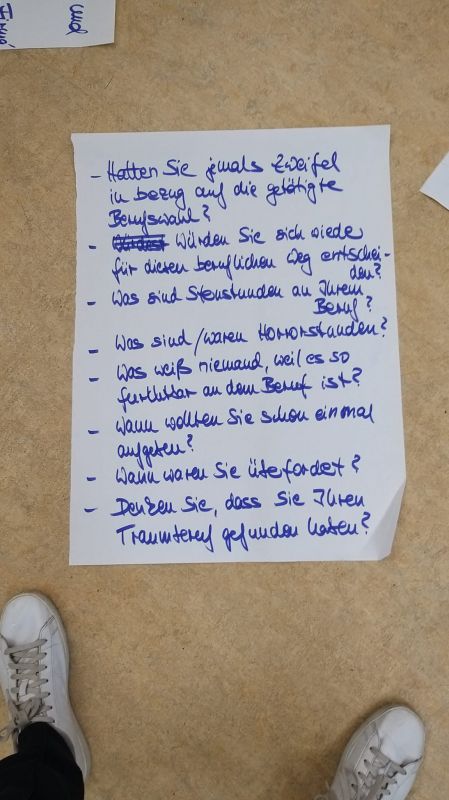 und
- Hatten Sie jemals Zweifel
in bezug auf die getätigte
Berufswahl?
- Würden Sie sich wieder
für diesen beruflichen Weg entschei-
den?
- Was sind Sternstunden an Ihrem
Beruf?
- Was sind/waren Horrorstunden?
- Was weiß niemand, weil es so
furchtbar an dem Beruf ist?
- Wann wollten Sie schon einmal
aufgeben?
- Wann waren Sie überfordert?
- Denken Sie, dass Sie Ihren
Traumberuf gefunden haben?